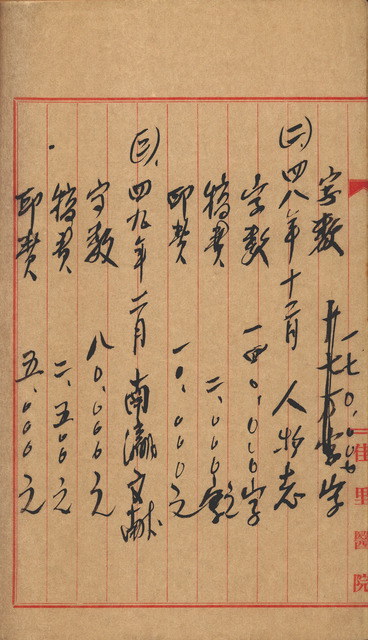 佳里醫院
字数 一七〇,〇〇〇字
(二)、四八年十二月 人物志
字数 一四〇,〇〇〇字
稿費 二,〇〇〇元
印費 一〇,〇〇〇元
(三)、四九年二月 南瀛文献
字数 八〇,〇〇〇元
稿費 二,五〇〇元
印費 五,〇〇〇元